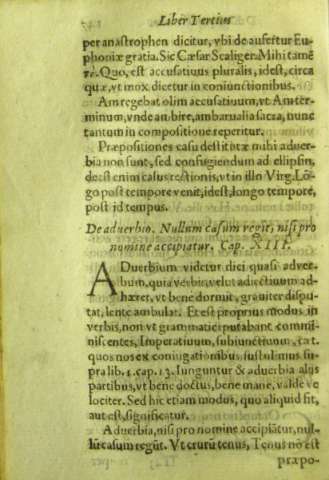 Liber Tertius
per anastrophen dicitur, vbi de aufertur Eu-
phoniæ gratia. Sic Cæsar Scaliger. Mihi tamē
Quo, est accusatiuus pluralis, idest, circa
quæ, vt mox dicetur in coniunctionibus.
Am regebat olim accusatiuum, vt Am ter-
minum, vnde ambire, ambarualia sacra, nunc
tantum in compositione reperitur.
Præpositiones casu destitutæ mihi aduer-
bia non sunt, sed confugiendum ad ellipsin,
deest enim casus rectionis, vt in illo Virg. Lō-
go post tempore venit, idest, longo tempore,
post id tempus.
De aduerbio. Nullum casum regit, nisi pro
nomine accipiatur, Cap. XIII.
ADuerbium videtur dici quasi aduer-
bum, quia verbis, velut adiectiuum ad-
hæret, vt bene dormit, grauiter dispu-
tat, lente ambulat. Et est proprius modus in
verbis, non vt grammatici putabant commi-
niscentes, Imperatiuum, subiunctiuum, &c.
quos nos ex coniugationibus sustulimus su-
pra lib. 1. cap. 13. Iunguntur & aduerbia alijs
partibus, vt bene doctus, bene mane, valde ve
lociter. Sed hic etiam modus, quo aliquid sit,
aut est, significatur.
Aduerbia, nisi pro nomine accipiātur, nul-
lū casum regūt. Vt crurū tenus, Tenus nō est
præpo-